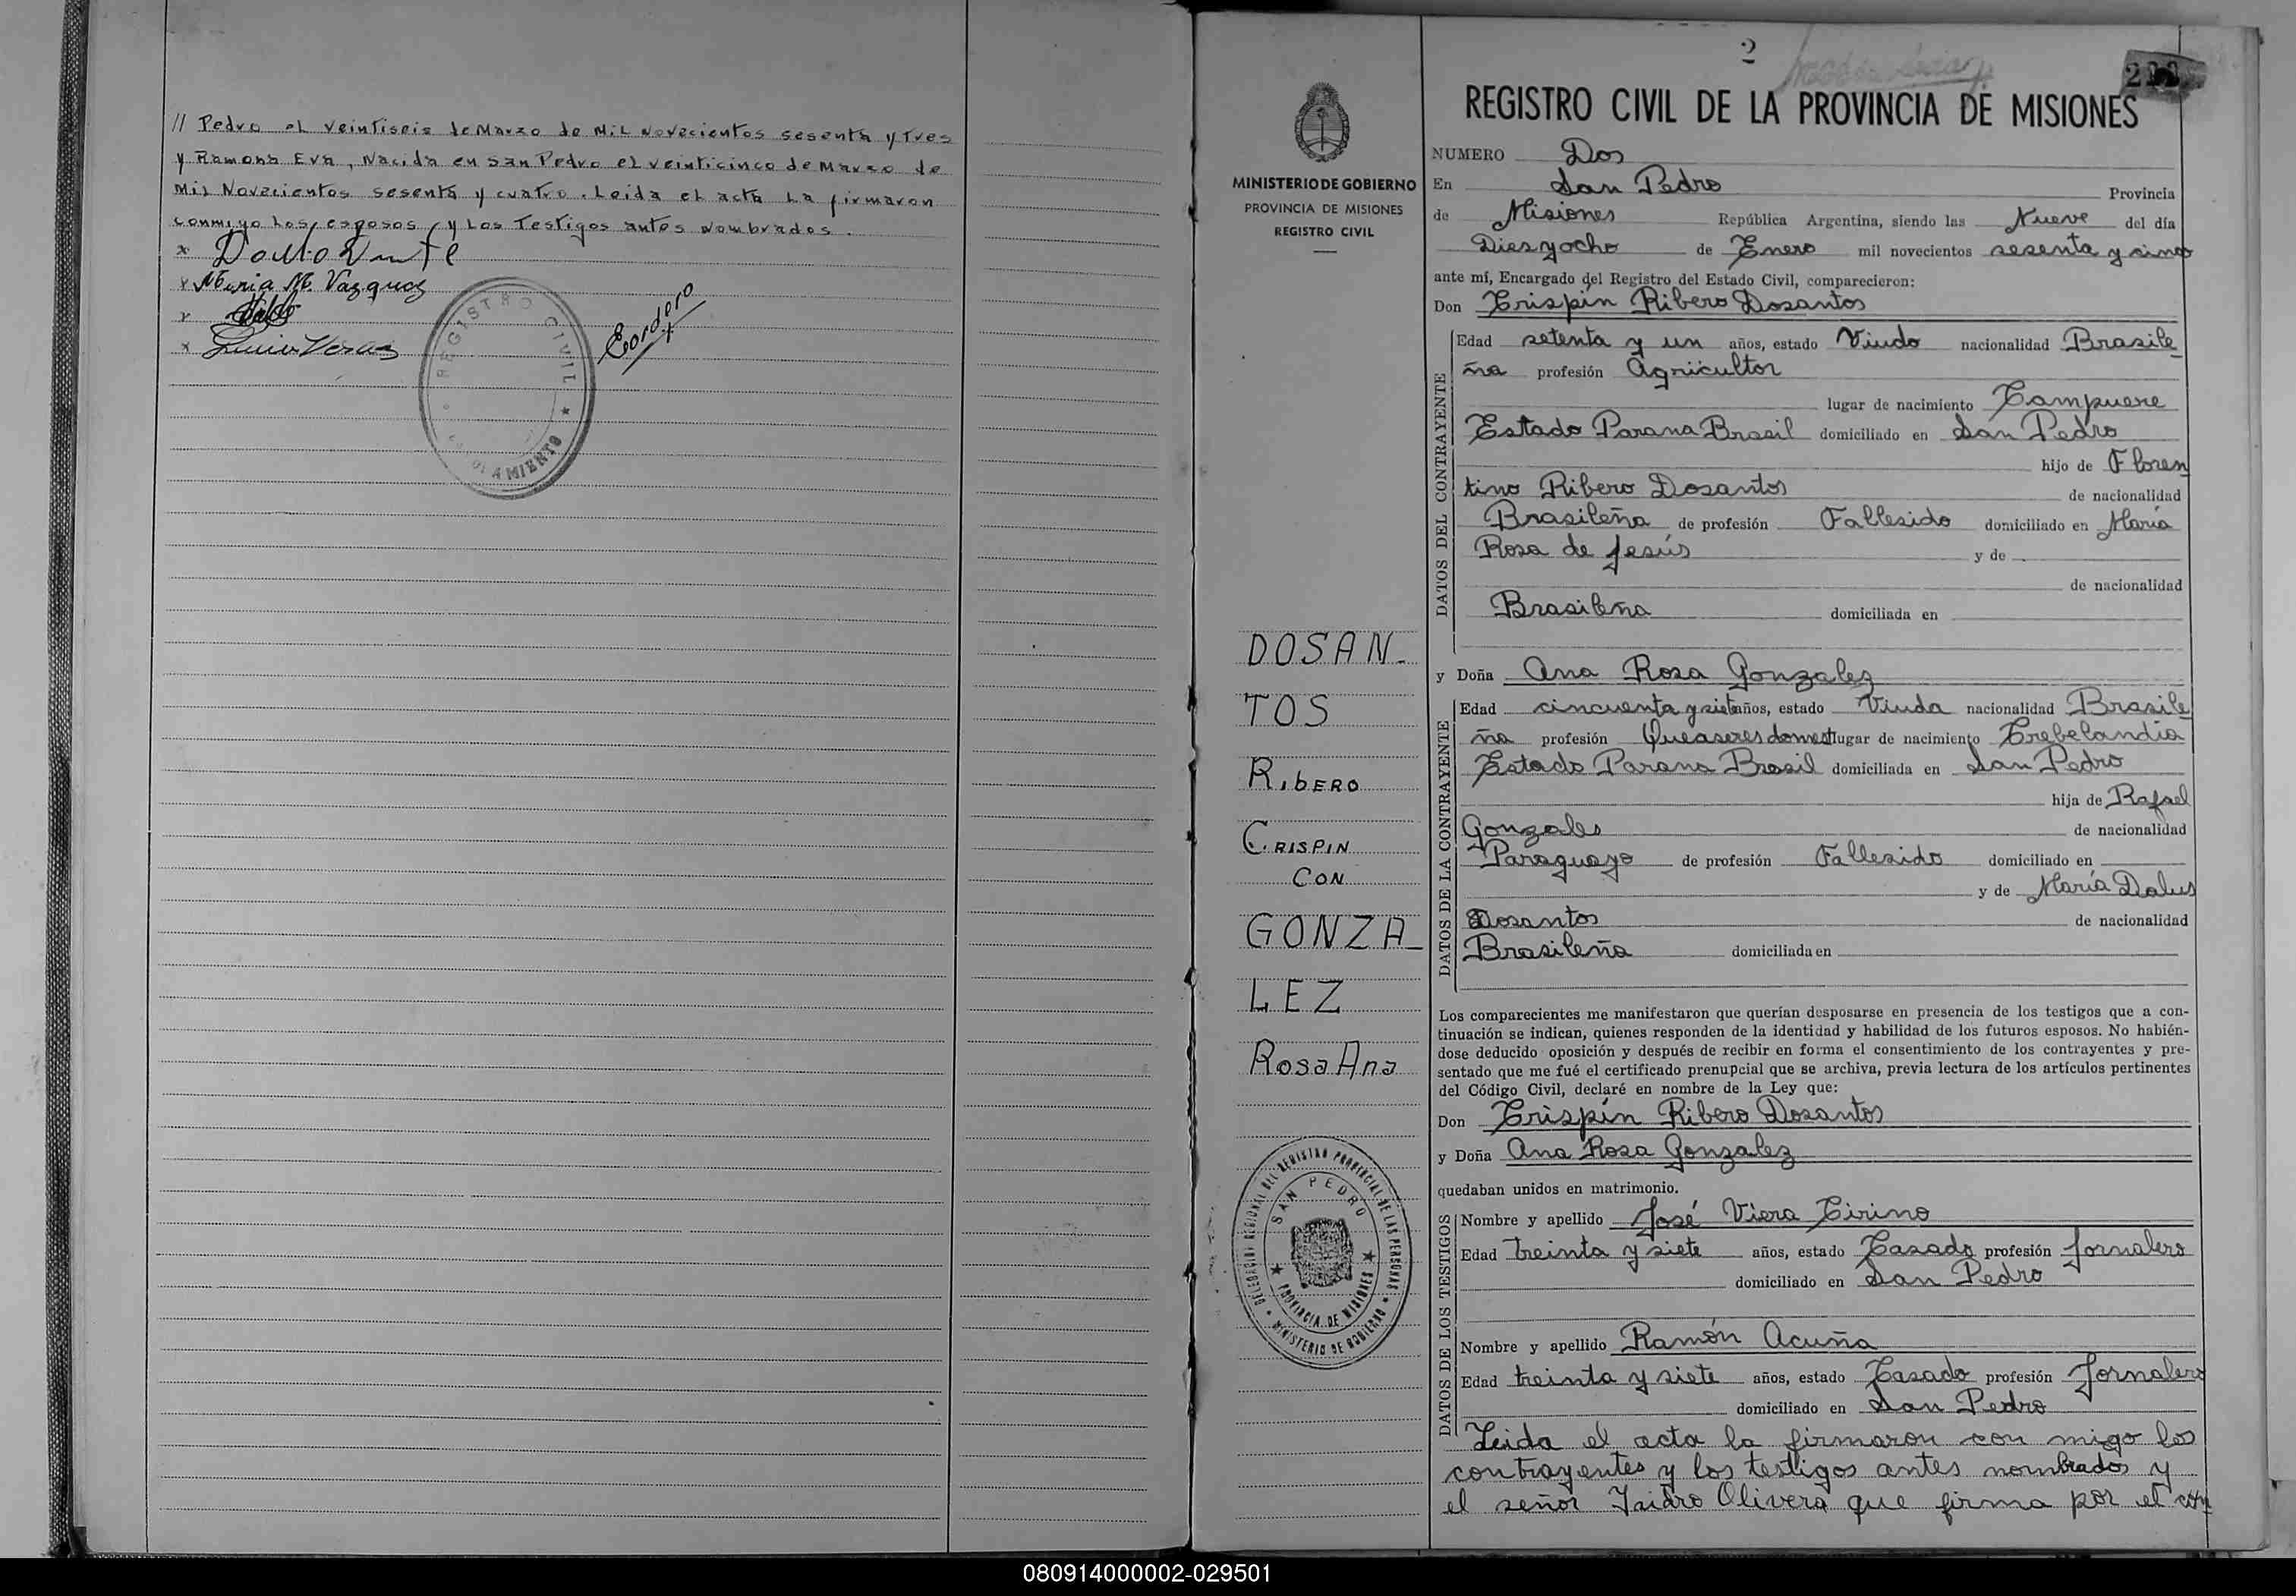 // Pedro el veintiseis de Marzo de Mil Novecientos sesenta y Tres
y Ramona Eva, Nacida en San Pedro el veinticinco de Marzo de
Mil Novecientos sesenta y cuatro. Leida el acta La firmaron
conmigo Los esposos y Los Testigos antes Nombrados.
x
x Maria M. Vazquez
x
x
Cordero
REGISTRO CIVIL
2
REGISTRO CIVIL DE LA PROVINCIA DE MISIONES
MINISTERIO DE GOBIERNO
PROVINCIA DE MISIONES
REGISTRO CIVIL
DOSAN-
TOS
RibERO
CRISPIN
CON
GONZA-
LEZ
Rosa Ana
DELEGACION REGIONAL DEL REGISTRO PROVINCIAL DE LAS PERSONAS
SAN PEDRO
PROVINCIA DE MISIONES
MINISTERIO DE GOBIERNO
NUMERO Dos
En San Pedro Provincia
de Misiones República Argentina, siendo las Nueve del día
Diesyocho de Enero mil novecientos sesenta y cinco
ante mí, Encargado del Registro del Estado Civil, comparecieron:
Don Crispín Ribero Dosantos
DATOS DEL CONTRAYENTE
Edad setenta y un años, estado Viudo nacionalidad Brasile
ña profesión Agricultor
lugar de nacimiento Campuere
Estado Parana Brasil domiciliado en San Pedro
hijo de Floren
tino Ribero Dosantos de nacionalidad
Brasileña de profesión Fallesido domiciliado en María
Rosa de Jesús y de
de nacionalidad
Brasileña domiciliada en
y Doña Ana Rosa Gonzalez
DATOS DE LA CONTRAYENTE
Edad cincuenta y siete años, estado Viuda nacionalidad Brasile
ña profesión Queaseres domest lugar de nacimiento Crebelandia
Estado Parana Brasil domiciliada en San Pedro
hija de Rafael
Gonzales de nacionalidad
Paraguayo de profesión Fallesido domiciliado en
y de María Dalus
Dosantos de nacionalidad
Brasileña domiciliada en
Los comparecientes me manifestaron que querían desposarse en presencia de los testigos que a con-
tinuación se indican, quienes responden de la identidad y habilidad de los futuros esposos. No habién-
dose deducido oposición y después de recibir en forma el consentimiento de los contrayentes y pre-
sentado que me fué el certificado prenupcial que se archiva, previa lectura de los artículos pertinentes
del Código Civil, declaré en nombre de la Ley que:
Don Crispín Ribero Dosantos
y Doña Ana Rosa Gonzalez
quedaban unidos en matrimonio.
DATOS DE LOS TESTIGOS
Nombre y apellido José Viera Cirino
Edad treinta y siete años, estado Casado profesión Jornalero
domiciliado en San Pedro
Nombre y apellido Ramón Acuña
Edad treinta y siete años, estado Casado profesión Jornalero
domiciliado en San Pedro
Leida el acta la firmaron con migo los
contrayentes y los testigos antes nombrados y
el señor Isidro Olivera que firma por el con
080914000002-029501